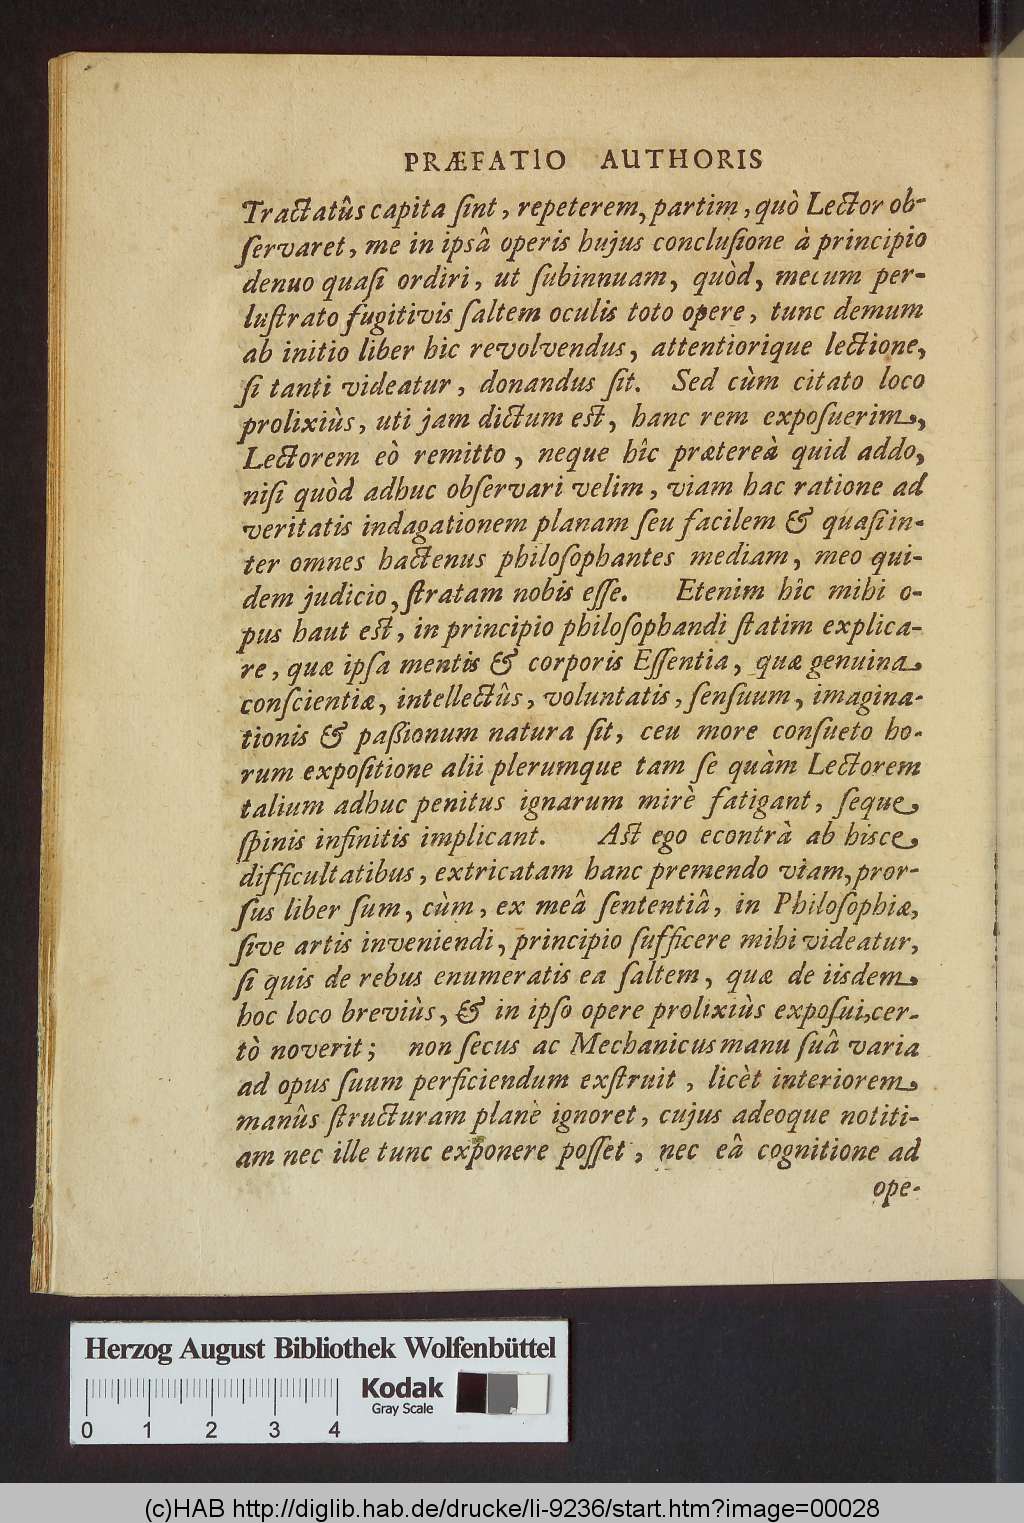 PRÆFATIO AUTHORIS
Tractatûs capita ſint, repeterem, partim, quò Lector ob-
ſervaret, me in ipsâ operis hujus concluſione à principio
denuo quaſi ordiri, ut ſubinnuam, quòd, mecum per-
luſtrato fugitivis ſaltem oculis toto opere, tunc demum
ab initio liber hic revolvendus, attentiorique lectione,
ſi tanti videatur, donandus ſit. Sed cùm citato loco
prolixiùs, uti jam dictum eſt, hanc rem expoſuerim,
Lectorem eò remitto, neque hîc prætereà quid addo,
niſi quòd adhuc obſervari velim, viam hac ratione ad
veritatis indagationem planam ſeu facilem & quaſi in-
ter omnes hactenus philoſophantes mediam, meo qui-
dem judicio, ſtratam nobis eſſe. Etenim hîc mihi o-
pus haut eſt, in principio philoſophandi ſtatim explica-
re, quæ ipſa mentis & corporis Eſſentia, quæ genuina
conſcientiæ, intellectûs, voluntatis, ſenſuum, imagina-
tionis & paßionum natura ſit, ceu more conſueto ho-
rum expoſitione alii plerumque tam ſe quàm Lectorem
talium adhuc penitus ignarum mirè fatigant, ſeque
ſpinis infinitis implicant. Aſt ego econtrà ab hisce
difficultatibus, extricatam hanc premendo viam, pror-
ſus liber ſum, cùm, ex meâ ſententiâ, in Philoſophiæ,
ſive artis inveniendi, principio ſufficere mihi videatur,
ſi quis de rebus enumeratis ea ſaltem, quæ de iisdem
hoc loco breviùs, & in ipſo opere prolixiùs expoſui, cer-
tò noverit; non ſecus ac Mechanicus manu ſuâ varia
ad opus ſuum perficiendum exſtruit, licèt interiorem
manûs ſtructuram planè ignoret, cujus adeoque notiti-
am nec ille tunc exponere poſſet, nec eâ cognitione ad
ope-
Herzog August Bibliothek Wolfenbüttel
Kodak
Gray Scale
0 1 2 3 4
(c)HAB http://diglib.hab.de/drucke/li-9236/start.htm?image=00028